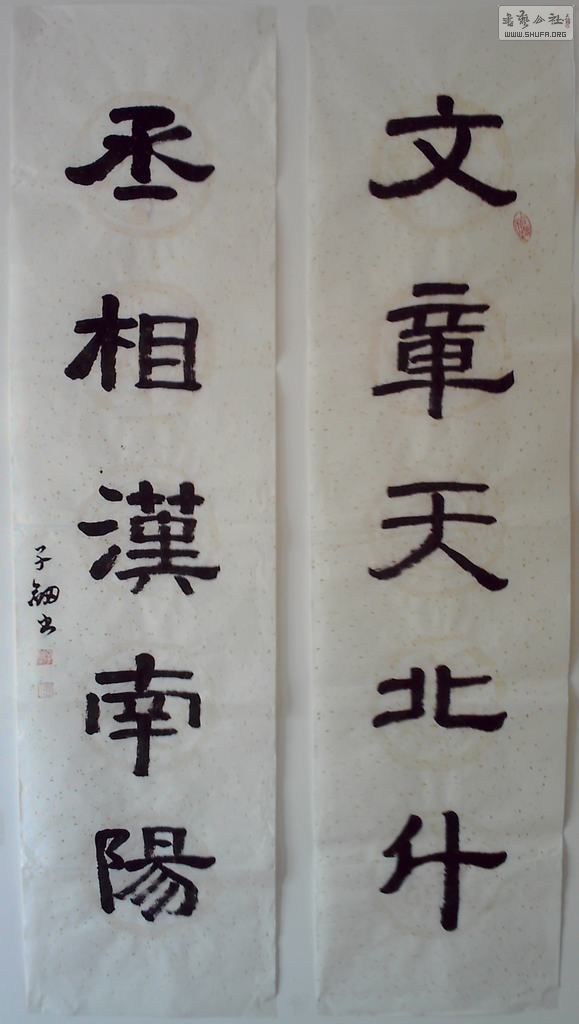 書藝公社
WWW.SHUFA.ORG
文章天北斗
丞相漢南陽
子釼书